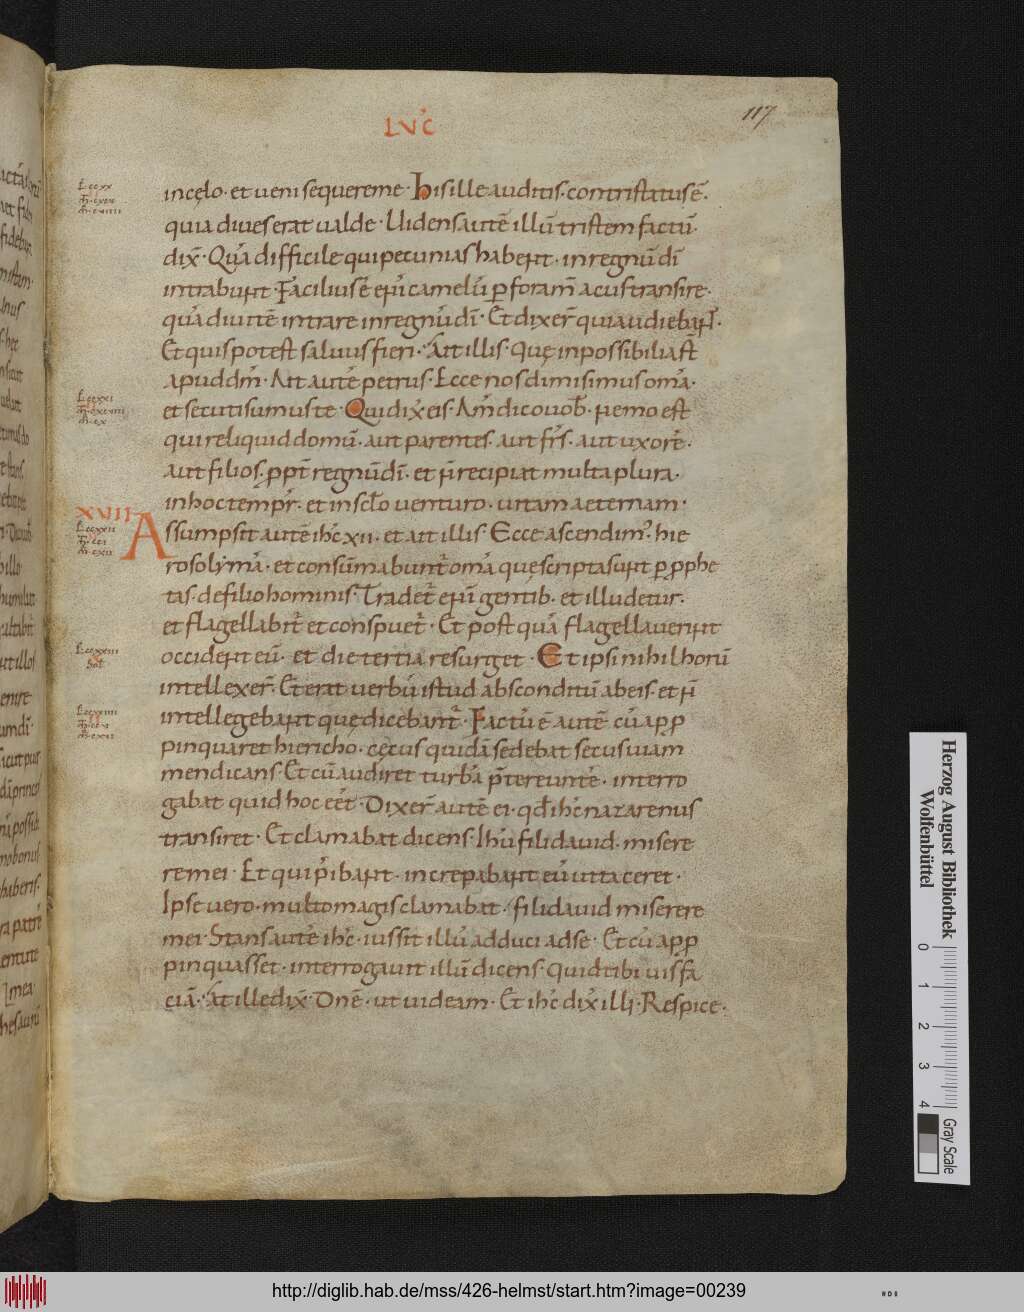 LVC̓
117
in cęlo · et ueni sequere me · His ille auditis · contristatus ē̄ ·
quia diues erat ualde · Uidens autē illū tristem factū ·
dix̄ · Quā difficile qui pecunias habent · in regnū dī
intrabunt · Facilius ē eni̅ camelū ꝑ foram̅ acus transire ·
quā diuitē intrare in regnū dī · Et dixer̄ qui audiebant ·
Et quis potest saluus fieri · Ait illis · Quę inpossibilia st̅
apud dm̅ · Ait autē petrus · Ecce nos dimisimus om̅a ·
et secuti sumus te · Qui dix̄ eis · Am̅ dico uob̄ · nemo est
qui reliquid domū · aut parentes · aut fr̅s · aut uxorē ·
aut filios · ꝓpt̄ regnū dī · et n̄ recipiat multa plura ·
in hoc tempr̄ · et in sc̅lo uenturo · uitam aeternam ·
XVII
Assumpsit autē ih̅c xii · et ait illis · Ecce ascendim᾿ · hie
rosolymā · et consūmabunt᷑ om̅a quę scripta sunt ꝑ ꝓphe
tas · de filio hominis · Tradet᷑ eni̅ gentib · et illudetur ·
et flagellabit᷑ et conspuet᷑ · Et post quā flagellauerint
occident eū · et die tertia resurget · Et ipsi nihil horū
intellexer̄ · Et erat uerbū istud absconditū ab eis · et n̄
intellegebant quę dicebant᷑ · Factū ē autē cū app̄
pinquaret hiericho · cęcus quidā sedebat secus uiam
mendicans · Et cū audiret turbā p̄tereuntē · interro
gabat quid hoc eēt · Dixer̄ autē ei · qd̄ ih̅c nazarenus
transiret · Et clamabat dicens · Ihū fili dauid · misere
re mei · Et qui p̄ibant · increpabant eū ut taceret ·
Ipse uero · multo magis clamabat · fili dauid miserere
mei · Stans autē ih̅c · iussit illū adduci ad se · Et cū app̄
pinquasset · interrogauit illū dicens · Quid tibi uis fa
ciā · At ille dix̄ · Dn̅e · ut uideam · Et ih̅c dix̄ illi · Respice ·
Herzog August Bibliothek
Wolfenbüttel
0 1 2 3 4
Gray Scale
http://diglib.hab.de/mss/426-helmst/start.htm?image=00239